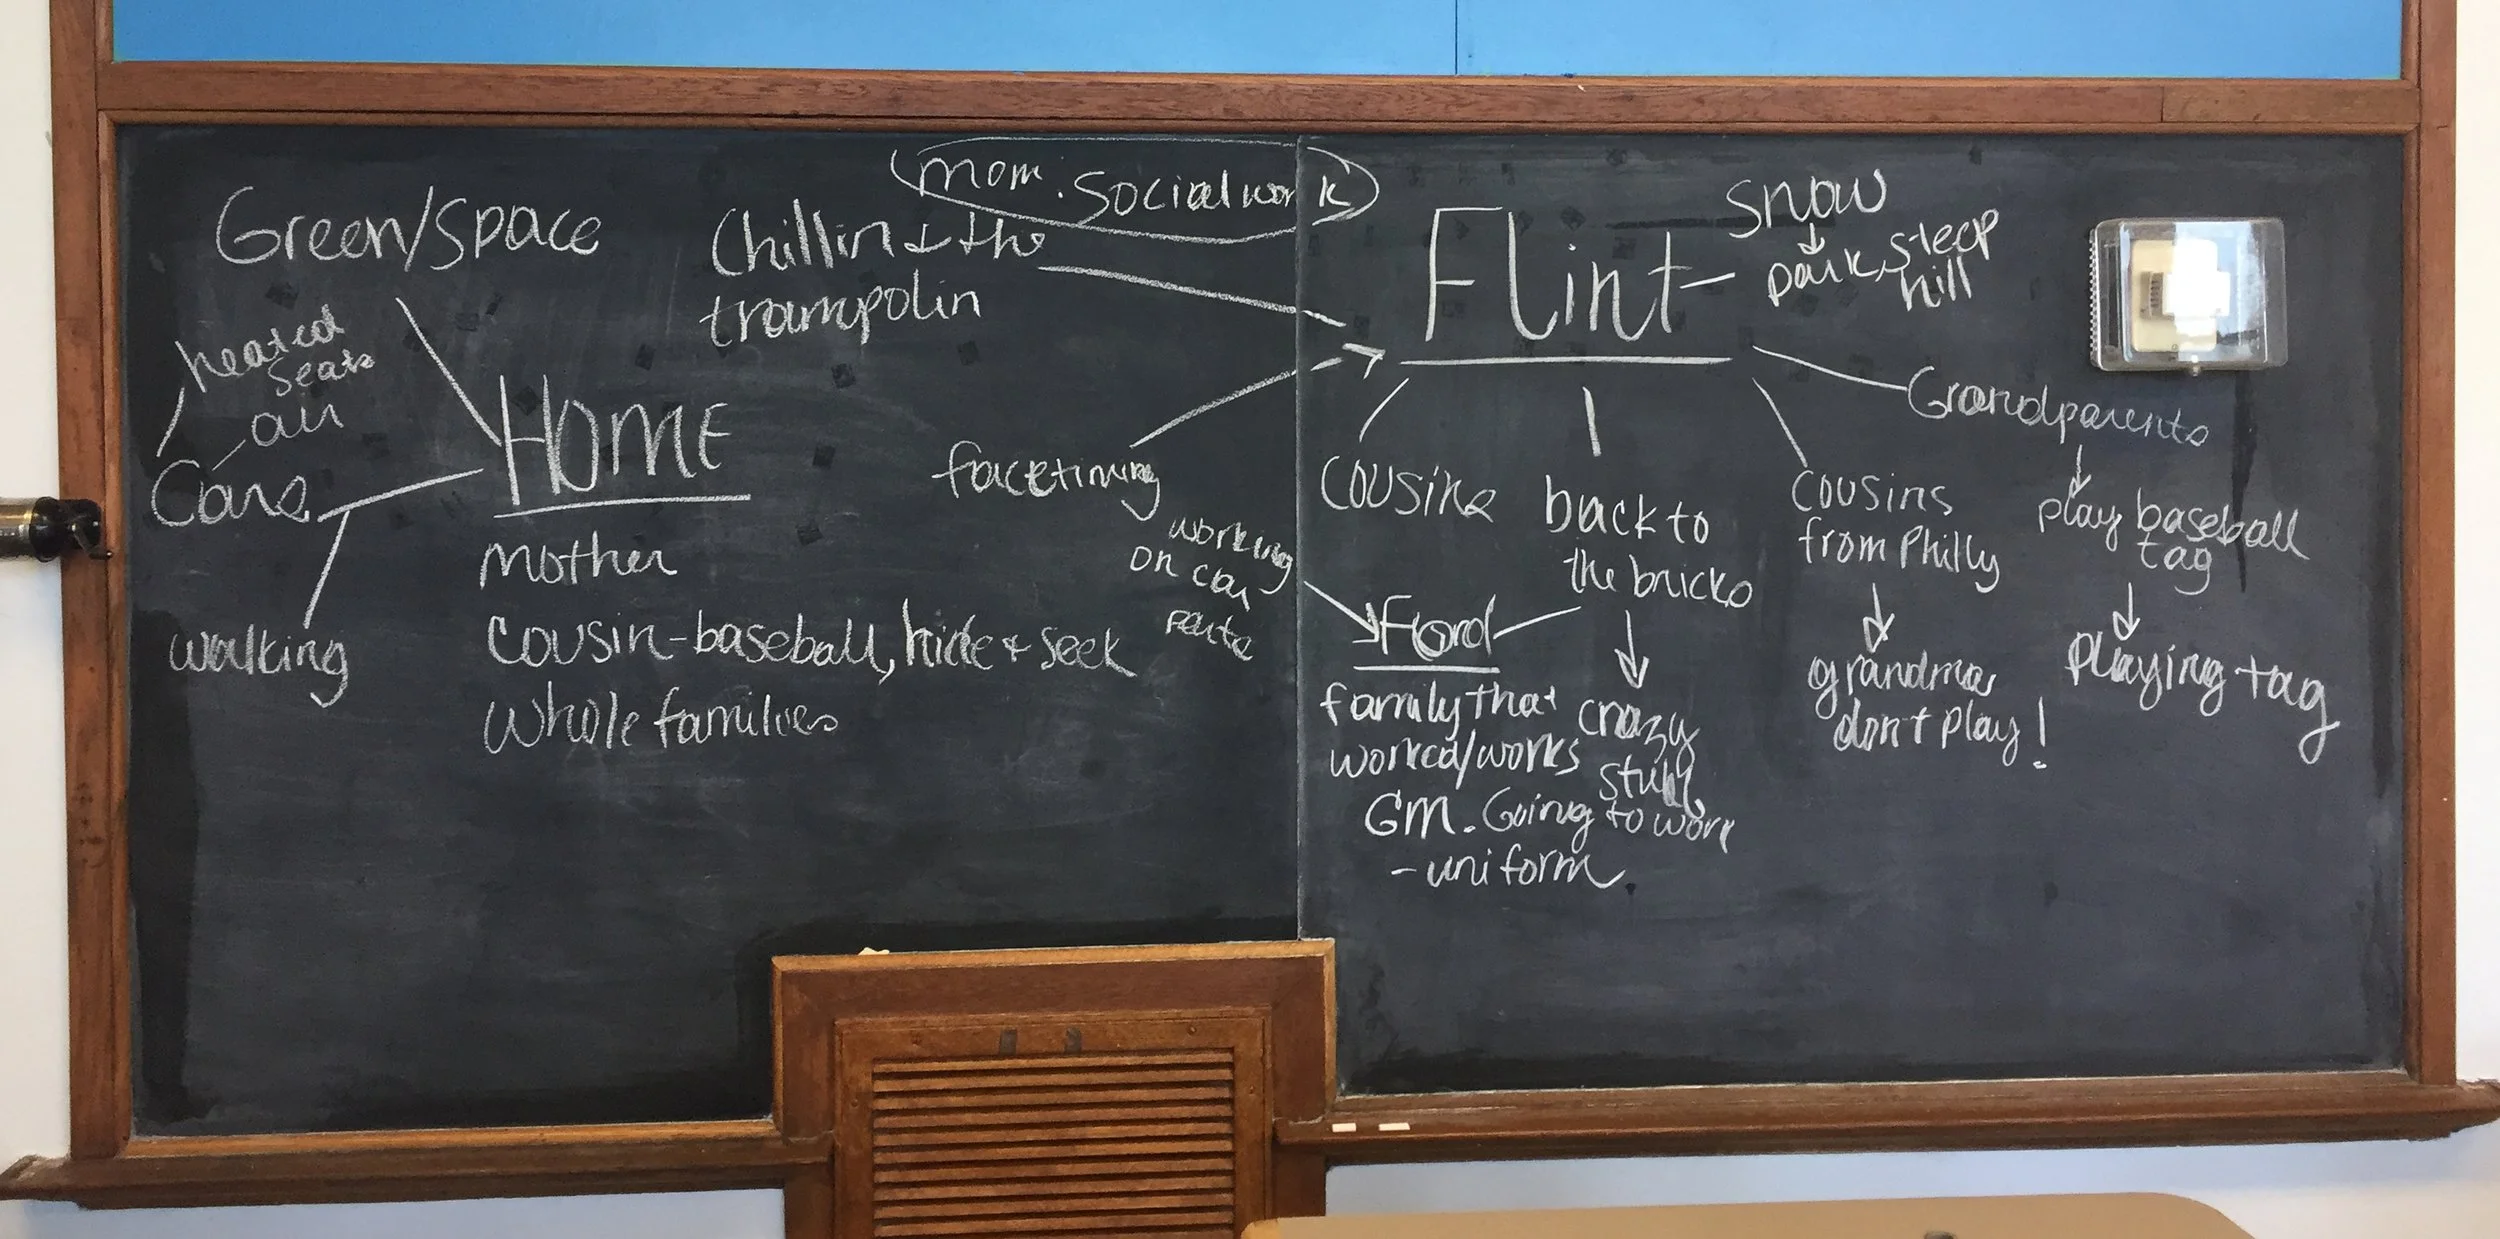 Green/Space
heated
seats
air
Cars
walking
HOME
Mother
Cousin-baseball, hide + seek
Whole families
mom. Social work
Chillin + the
trampolin
facetiming
working
on car
parts
Flint
snow
park, steep
hill
cousins
back to
the bricks
Ford
family that
worked/works
GM. Going to work
- uniform
crazy
stuff
cousins
from Philly
grandma
don't play!
Grandparents
play baseball
tag
playing tag